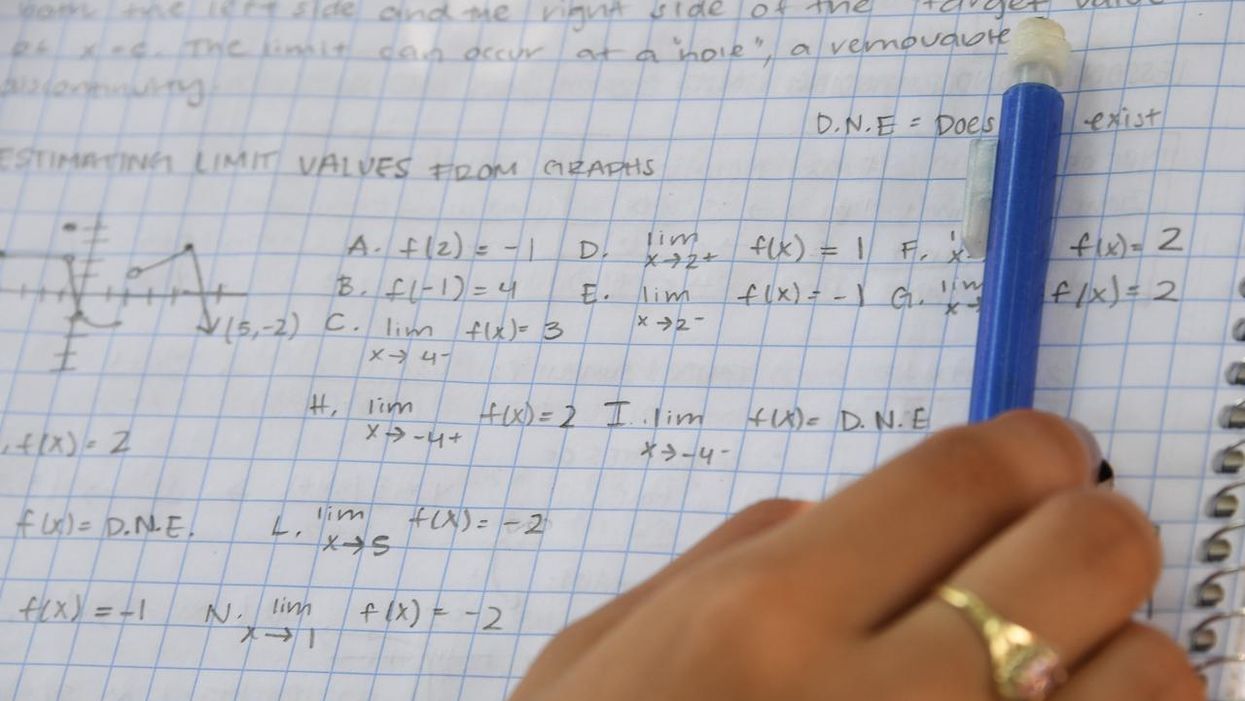 both the left side and the right side of the target value
of x=c. The limit can occur at a "hole", a removable
discontinuity.
D.N.E = Does exist
ESTIMATING LIMIT VALUES FROM GRAPHS
A. f(2) = -1 D. lim x→2+ f(x) = 1 F. f(x) = 2
B. f(-1) = 4 E. lim x→2- f(x) = -1 G. lim x→ f(x) = 2
(5,-2) C. lim x→4- f(x) = 3
H. lim x→-4+ f(x) = 2 I. lim x→-4- f(x) = D.N.E
f(x) = 2
f(x) = D.N.E. L. lim x→5 f(x) = -2
f(x) = -1 N. lim x→1 f(x) = -2